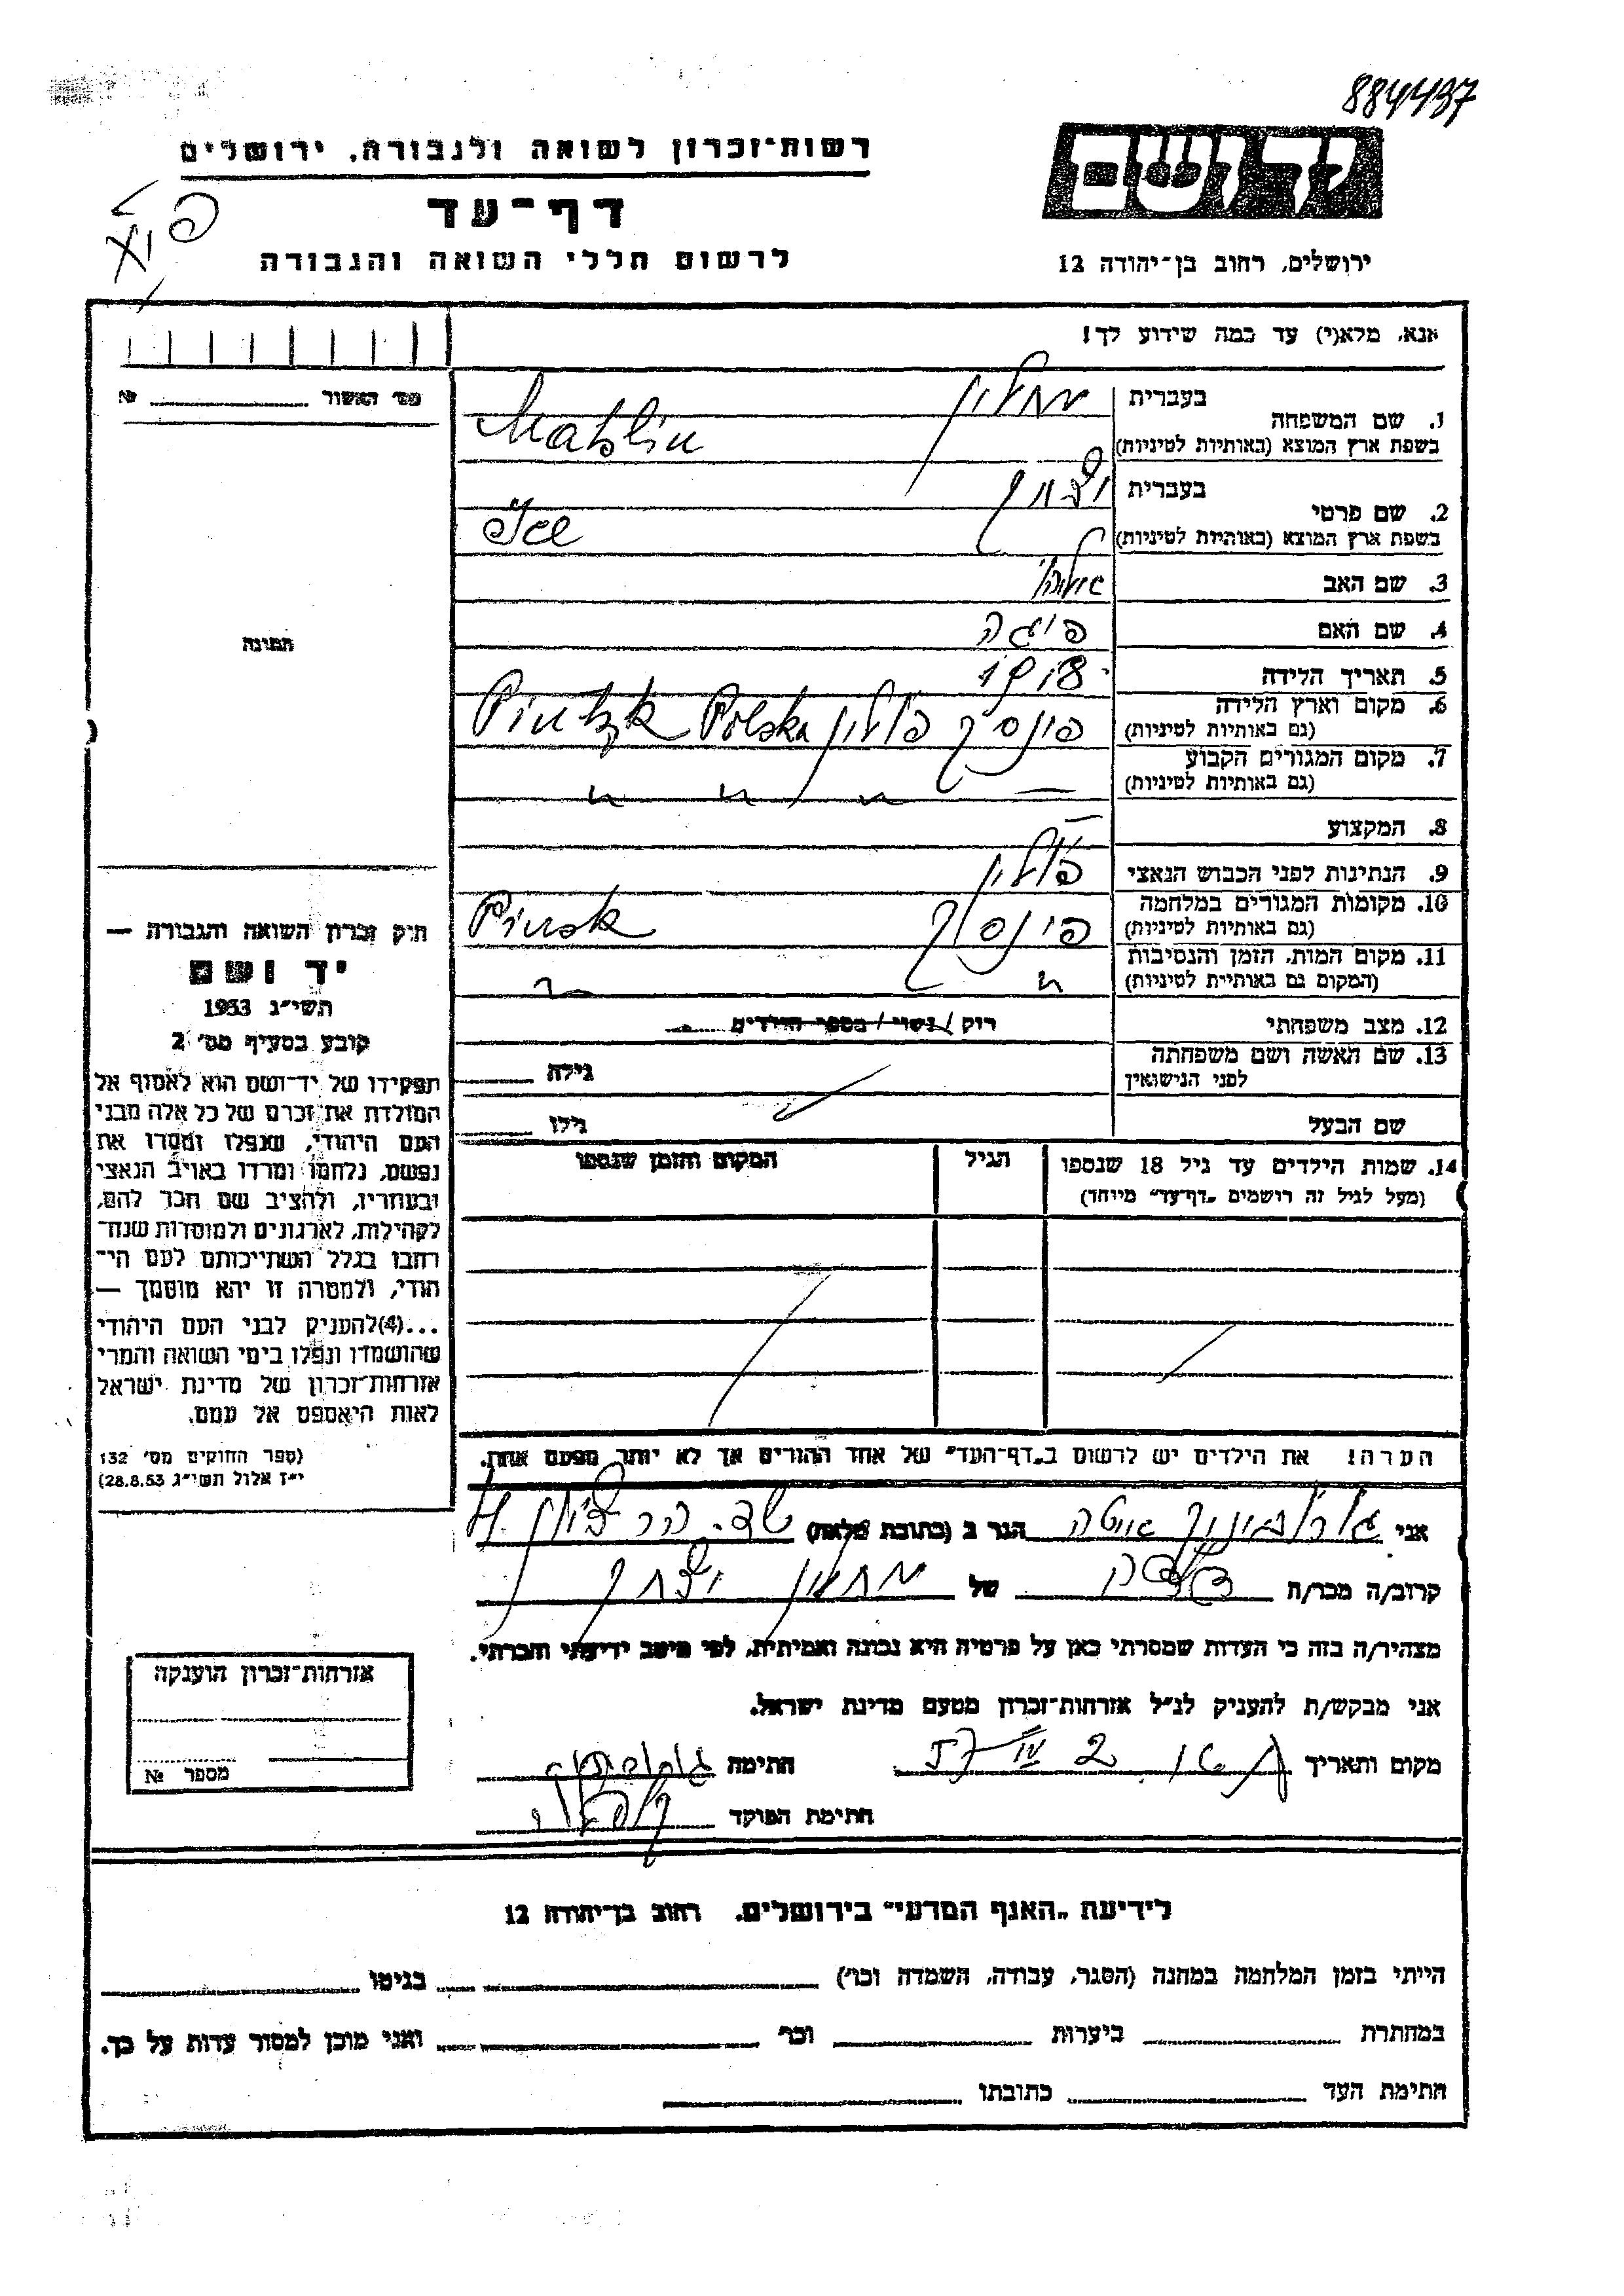 884437
רשות־זכרון לשואה ולגבורה, ירושלים
דף־עד
לרשום חללי השואה והגבורה
יד ושם
ירושלים, רחוב בן־יהודה 12
אנא, מלא(י) עד כמה שידוע לך!
מס' האשור №
1. שם המשפחה בעברית מחלין
בשפת ארץ המוצא (באותיות לטיניות) Mahlin
2. שם פרטי בעברית יצחק
בשפת ארץ המוצא (באותיות לטיניות)
3. שם האב
4. שם האם פייגה
5. תאריך הלידה
6. מקום וארץ הלידה פינסק פולין Polska
(גם באותיות לטיניות)
7. מקום המגורים הקבוע — " " "
(גם באותיות לטיניות)
8. המקצוע —
9. הנתינות לפני הכבוש הנאצי פולין
10. מקומות המגורים במלחמה פינסק Pinsk
(גם באותיות לטיניות)
11. מקום המות, הזמן והנסיבות "
(המקום גם באותיות לטיניות)
12. מצב משפחתי רוק / נשוי / מספר הילדים
13. שם האשה ושם משפחתה גילה
לפני הנישואין
שם הבעל גילו
14. שמות הילדים עד גיל 18 שנספו הגיל המקום והזמן שנספו
(מעל לגיל זה רושמים "דף־עד" מיוחד)
הערה! את הילדים יש לרשום ב"דף־העד" של אחד ההורים אך לא יותר מפעם אחת.
תמונה
חוק זכרון השואה והגבורה —
יד ושם
תשי"ג 1953
קובע בסעיף מס' 2
תפקידו של יד־ושם הוא לאסוף אל
המולדת את זכרם של כל אלה מבני
העם היהודי, שנפלו ומסרו את
נפשם, נלחמו ומרדו באויב הנאצי
ובעוזריו, ולהציב שם וזכר להם,
לקהילות, לארגונים ולמוסדות שנח־
רבו בגלל השתייכותם לעם הי־
הודי, ולמטרה זו יהא מוסמך —
...(4) להעניק לבני העם היהודי
שהושמדו ונפלו בימי השואה והמרי
אזרחות־זכרון של מדינת ישראל
לאות היאספם אל עמם.
(ספר החוקים מס' 132
י"ז אלול תשי"ג 28.8.53)
אני הגר ב (כתובת מלאה) שד. הר ציון
קרוב/ה מכר/ה של מחלין יצחק
מצהיר/ה בזה כי העדות שמסרתי כאן על פרטיה היא נכונה ואמיתית, לפי מיטב ידיעתי והכרתי.
אני מבקש/ת להעניק לנ"ל אזרחות־זכרון מטעם מדינת ישראל.
מקום ותאריך חתימה
חתימת הפוקד
אזרחות־זכרון הוענקה
מספר №
לידיעת "האגף המדעי" בירושלים. רחוב בן־יהודה 12
הייתי בזמן המלחמה במחנה (הסגר, עבודה, השמדה וכו') בגיטו
במחתרת ביערות וכו' ואני מוכן למסור עדות על כך.
חתימת העד כתובתו